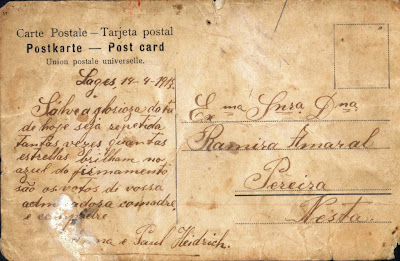 Carte Postale — Tarjeta postal
Postkarte — Post card
Union postale universelle.
Lages 14-4-191
Salve a glorioza data
de hoje seja repetida
tantas vezes quantas
estrellas brilham no
azul do firmamento
são os votos de vossa
admiradora comadre
e compadre
e Paul Heidrich.
Exma Snra Dna
Ramira Amaral
Pereira
Nesta.